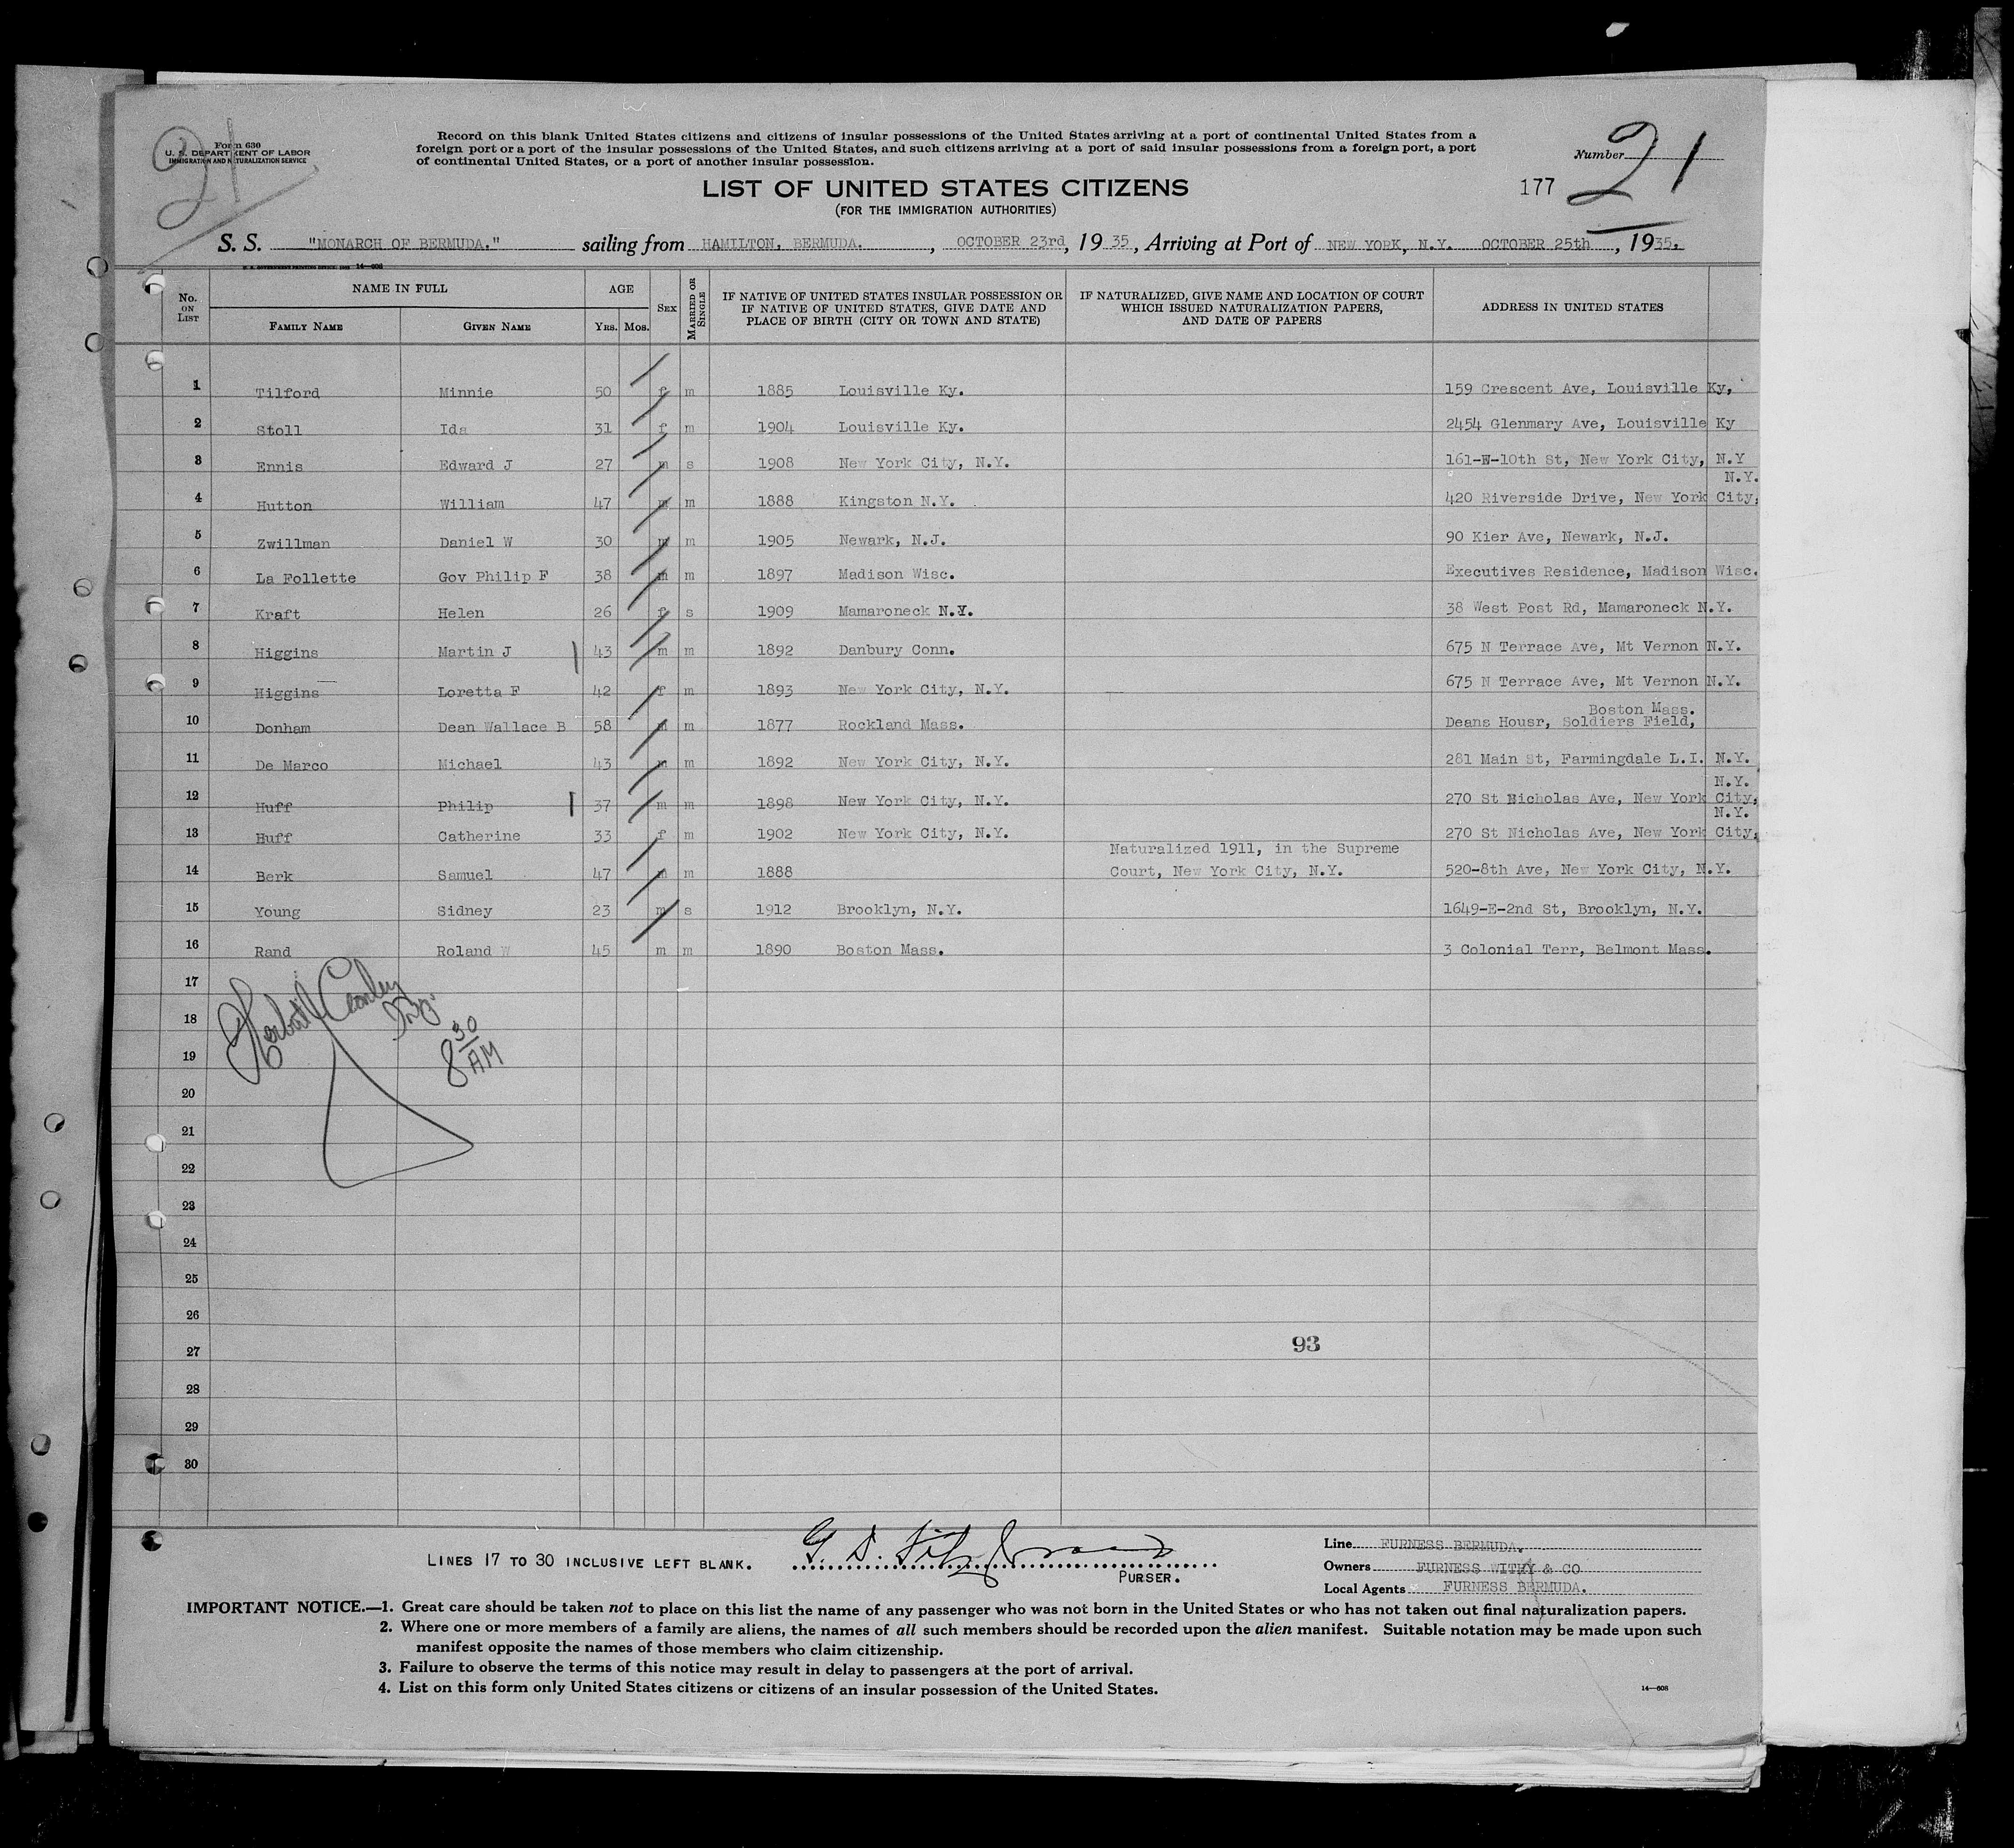 Form 630
U. S. DEPARTMENT OF LABOR
IMMIGRATION AND NATURALIZATION SERVICE
21
Record on this blank United States citizens and citizens of insular possessions of the United States arriving at a port of continental United States from a
foreign port or a port of the insular possessions of the United States, and such citizens arriving at a port of said insular possessions from a foreign port, a port
of continental United States, or a port of another insular possession.
Number 21
177
LIST OF UNITED STATES CITIZENS
(FOR THE IMMIGRATION AUTHORITIES)
S. S. "MONARCH OF BERMUDA." sailing from HAMILTON, BERMUDA. , OCTOBER 23rd, 1935, Arriving at Port of NEW YORK, N.Y. OCTOBER 25th, 1935.
14—608
No. ON LIST NAME IN FULL FAMILY NAME GIVEN NAME AGE YRS. MOS. SEX MARRIED OR SINGLE IF NATIVE OF UNITED STATES INSULAR POSSESSION OR IF NATIVE OF UNITED STATES, GIVE DATE AND PLACE OF BIRTH (CITY OR TOWN AND STATE) IF NATURALIZED, GIVE NAME AND LOCATION OF COURT WHICH ISSUED NATURALIZATION PAPERS, AND DATE OF PAPERS ADDRESS IN UNITED STATES
1 Tilford Minnie 50 f m 1885 Louisville Ky. 159 Crescent Ave, Louisville Ky,
2 Stoll Ida 31 f m 1904 Louisville Ky. 2454 Glenmary Ave, Louisville Ky
3 Ennis Edward J 27 m s 1908 New York City, N.Y. 161-E-10th St, New York City, N.Y
4 Hutton William 47 m m 1888 Kingston N.Y. 420 Riverside Drive, New York City, N.Y.
5 Zwillman Daniel W 30 m m 1905 Newark, N.J. 90 Kier Ave, Newark, N.J.
6 La Follette Gov Philip F 38 m m 1897 Madison Wisc. Executives Residence, Madison Wisc.
7 Kraft Helen 26 f s 1909 Mamaroneck N.Y. 38 West Post Rd, Mamaroneck N.Y.
8 Higgins Martin J 43 m m 1892 Danbury Conn. 675 N Terrace Ave, Mt Vernon N.Y.
9 Higgins Loretta F 42 f m 1893 New York City, N.Y. 675 N Terrace Ave, Mt Vernon N.Y.
10 Donham Dean Wallace B 58 m m 1877 Rockland Mass. Deans Housr, Soldiers Field, Boston Mass.
11 De Marco Michael 43 m m 1892 New York City, N.Y. 281 Main St, Farmingdale L.I. N.Y.
12 Huff Philip 37 m m 1898 New York City, N.Y. 270 St Nicholas Ave, New York City, N.Y.
13 Huff Catherine 33 f m 1902 New York City, N.Y. 270 St Nicholas Ave, New York City, N.Y.
14 Berk Samuel 47 m m 1888 Naturalized 1911, in the Supreme Court, New York City, N.Y. 520-8th Ave, New York City, N.Y.
15 Young Sidney 23 m s 1912 Brooklyn, N.Y. 1649-E-2nd St, Brooklyn, N.Y.
16 Rand Roland W 45 m m 1890 Boston Mass. 3 Colonial Terr, Belmont Mass.
17
18
19
8 30 AM
20
21
22
23
24
25
26
27
93
28
29
30
LINES 17 TO 30 INCLUSIVE LEFT BLANK.
PURSER.
Line FURNESS BERMUDA.
Owners FURNESS WITHY & CO
Local Agents FURNESS BERMUDA.
IMPORTANT NOTICE.—1. Great care should be taken not to place on this list the name of any passenger who was not born in the United States or who has not taken out final naturalization papers.
2. Where one or more members of a family are aliens, the names of all such members should be recorded upon the alien manifest. Suitable notation may be made upon such
manifest opposite the names of those members who claim citizenship.
3. Failure to observe the terms of this notice may result in delay to passengers at the port of arrival.
4. List on this form only United States citizens or citizens of an insular possession of the United States.
14—608